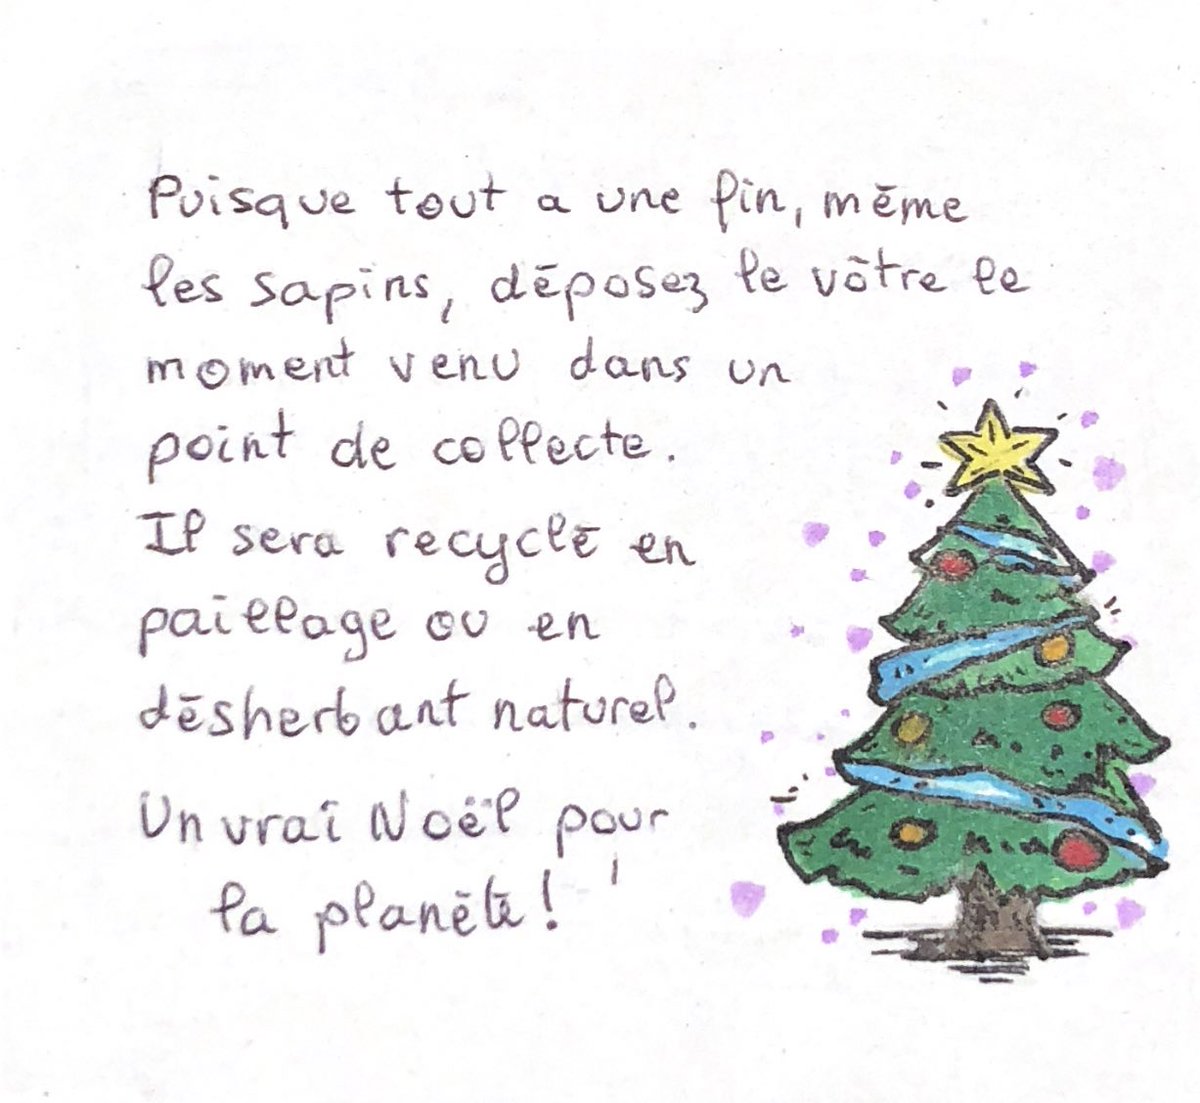 Puisque tout a une fin, même
les sapins, déposez le vôtre le
moment venu dans un
point de collecte.
Il sera recyclé en
paillage ou en
désherbant naturel.
Un vrai Noël pour
la planète !